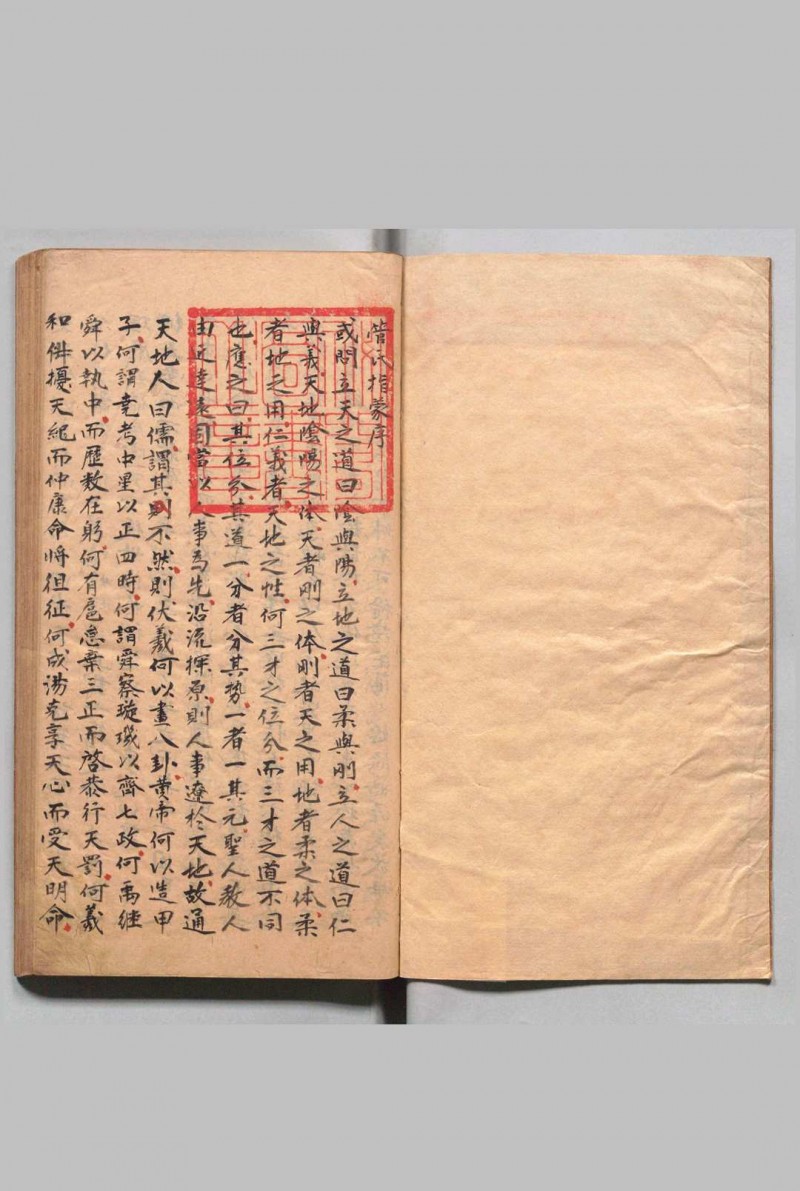 管氏指蒙序
或問立天之道曰陰與陽立地之道曰柔與剛立人之道曰仁
與義天地陰陽之体天者剛之体剛者天之用地者柔之体柔
者地之用仁義者天地之性何三才之位分而三才之道不同
也應之曰其位分其道一分者分其势一者一其元聖人教人
由近達遠固當以人事為先沿流探原則人事遼於天地故通
天地人曰儒謂其則不然則伏羲何以畫八卦黄帝何以造甲
子何謂堯考中星以正四時何謂舜察璇璣以齊七政何禹继
舜以执中而歷数在躬何有扈怠棄三正而啓恭行天罰何羲
和俶擾天紀而仲康命將徂征何成湯克享天心而受天明命